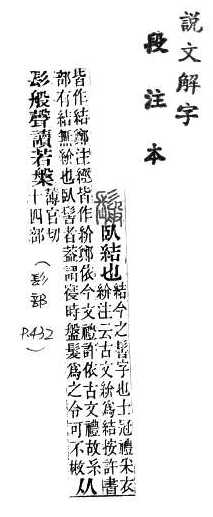 說文解字
段注本
臥結也
結今之髻字也士冠禮采衣
紒注云古文紒爲結按許書
皆作結鄭注經皆作紒鄭依今文禮許依古文禮故糸
部有結無紒也臥髻者葢謂寑時盤髮爲之令可不㪚
从
髟般聲讀若槃
薄官切
十四部
(髟部 P.432)